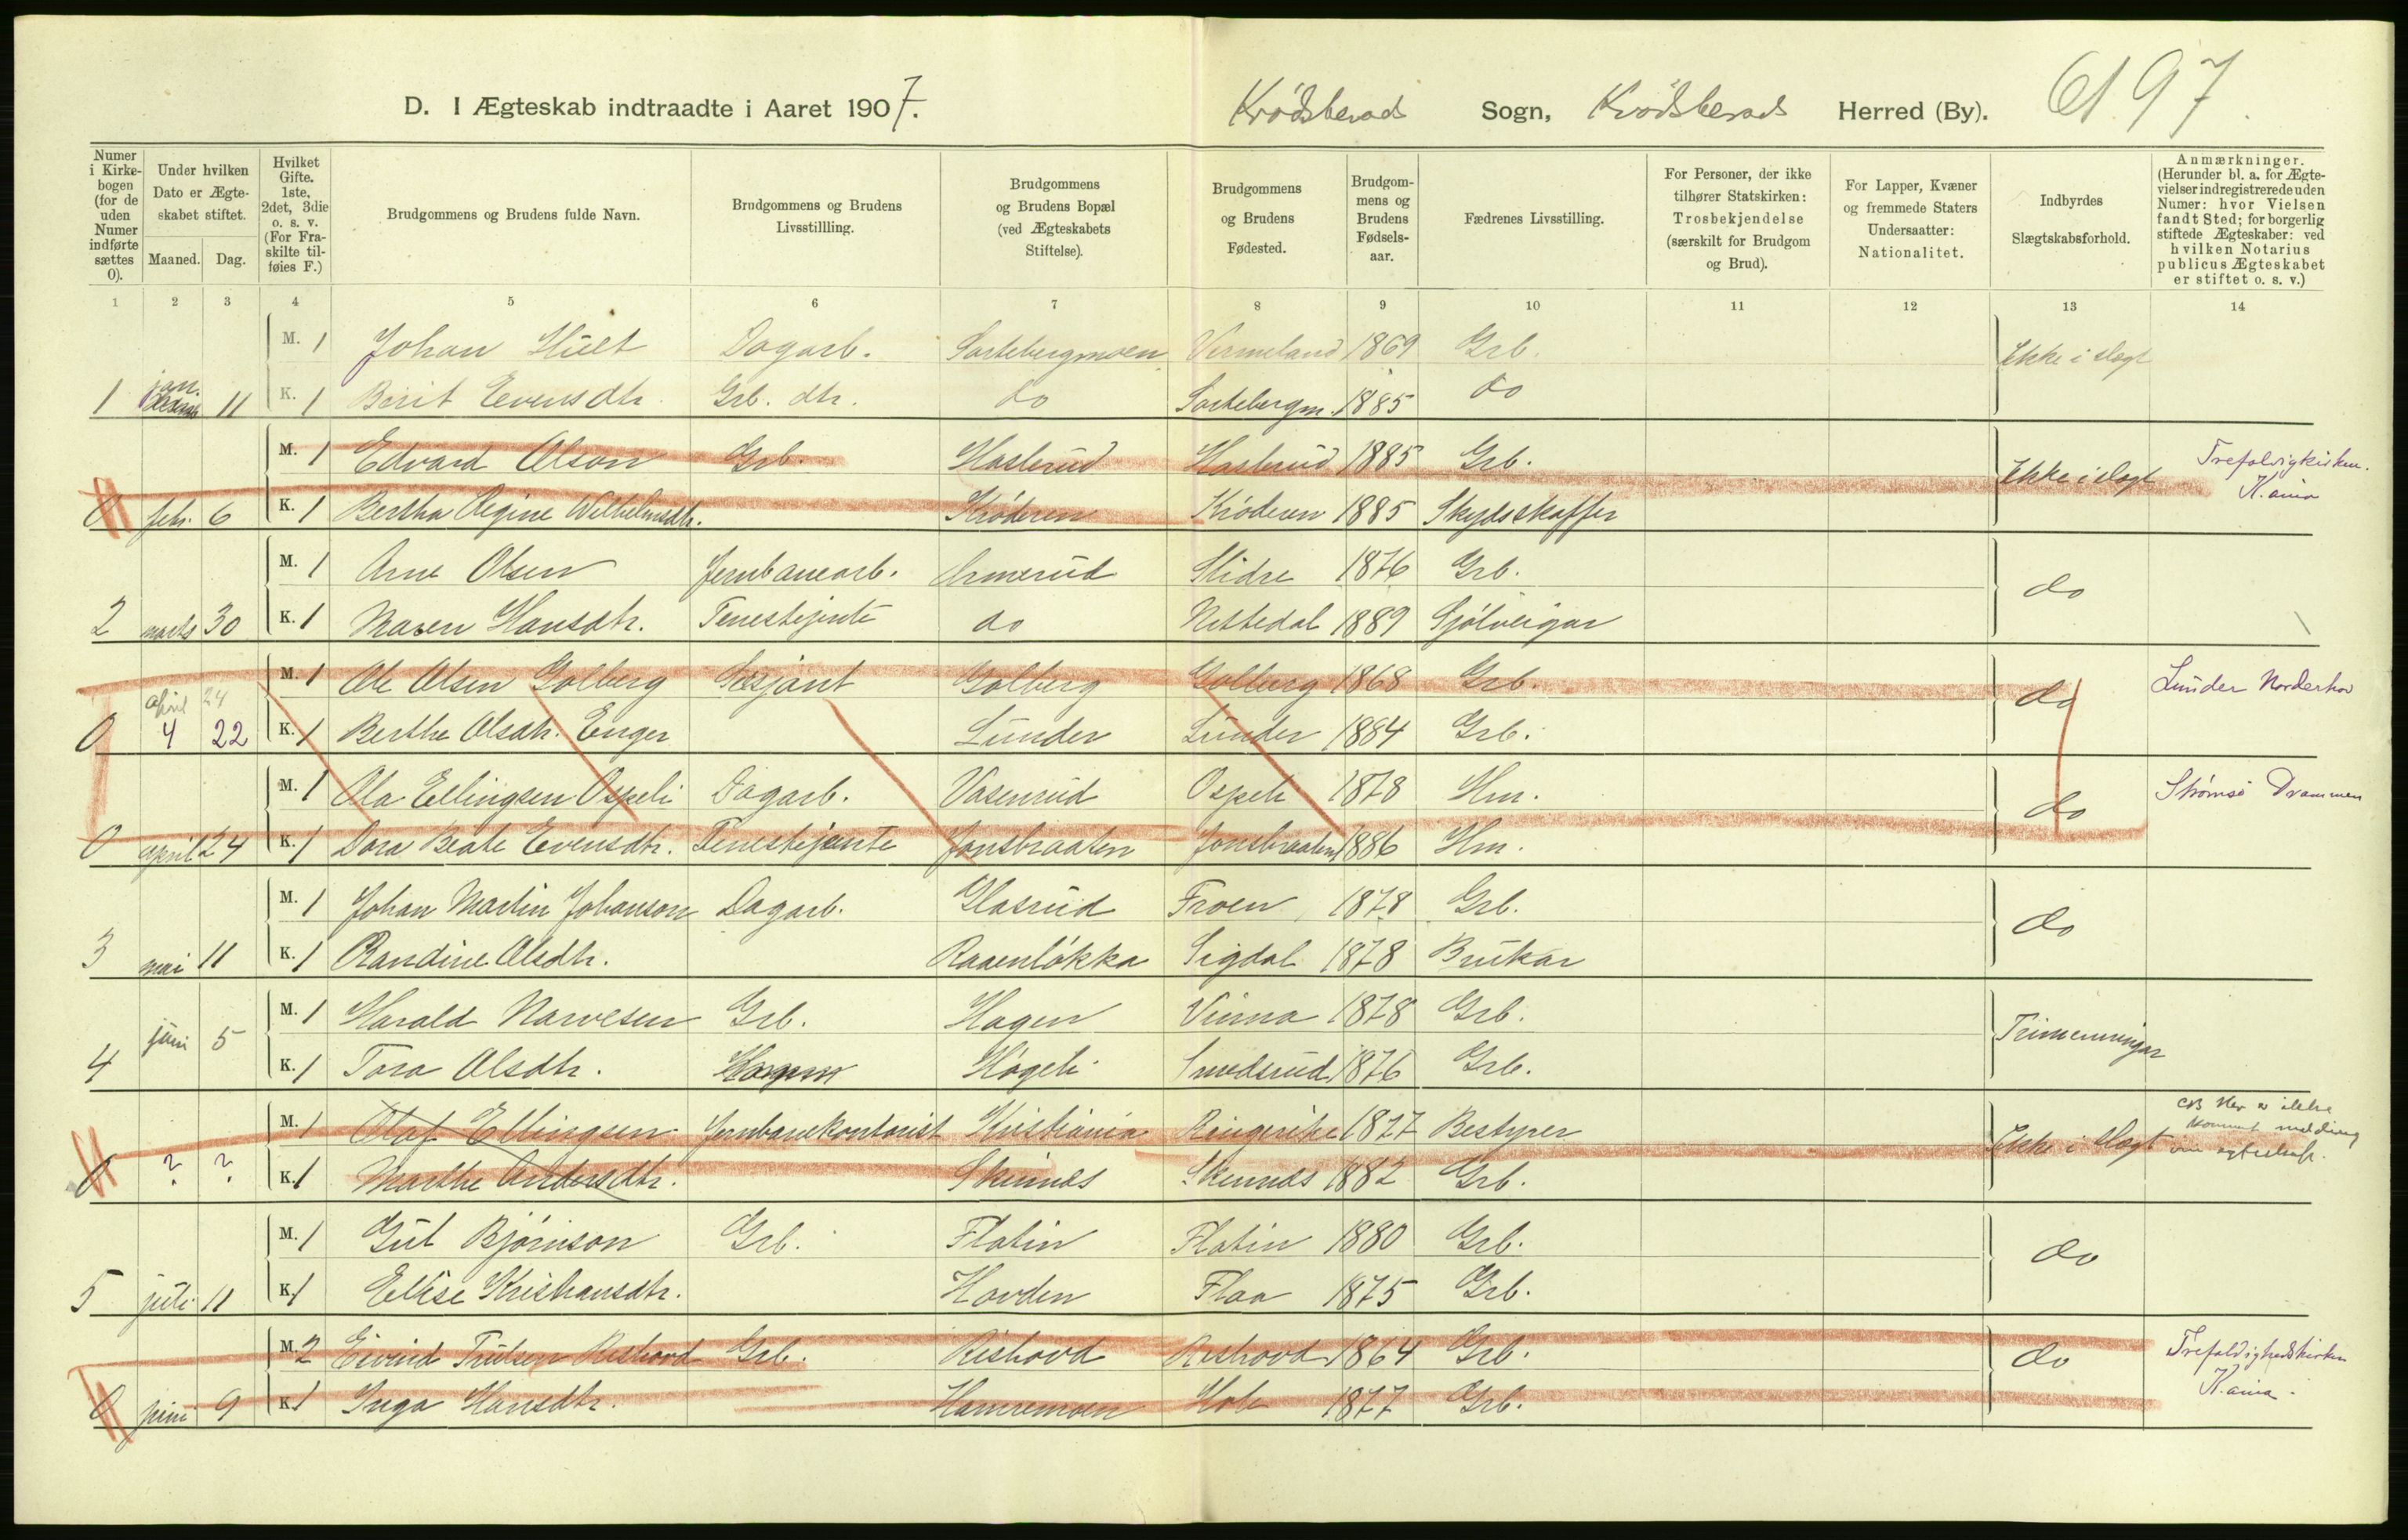 D. I Ægteskab indtraadte i Aaret 1907. Krødsherad Sogn, Krødsherad Herred (By). 97
Numer i Kirkebogen (for de uden Numer indførte sættes 0).
Under hvilken Dato er Ægteskabet stiftet.
Maaned. Dag.
Hvilket Gifte. 1ste, 2det, 3die o. s. v. (For Fraskilte tilføies F.)
Brudgommens og Brudens fulde Navn.
Brudgommens og Brudens Livsstillling.
Brudgommens og Brudens Bopæl (ved Ægteskabets Stiftelse).
Brudgommens og Brudens Fødested.
Brudgommens og Brudens Fødselsaar.
Fædrenes Livsstilling.
For Personer, der ikke tilhører Statskirken: Trosbekjendelse (særskilt for Brudgom og Brud).
For Lapper, Kvæner og fremmede Staters Undersaatter: Nationalitet.
Indbyrdes Slægtskabsforhold.
Anmærkninger. (Herunder bl. a. for Ægtevielser indregistrerede uden Numer: hvor Vielsen fandt Sted; for borgerlig stiftede Ægteskaber: ved hvilken Notarius publicus Ægteskabet er stiftet o. s. v.)
1 2 3 4 5 6 7 8 9 10 11 12 13 14
M. 1 Johan Hult Dagarb. Sortebergmoen Vermeland 1869 Grb. Ikke i slegt
1 jan. 11 K. 1 Berit Evensdtr. Grb. dtr. do Sortebergm. 1885 do
M. 1 Edvard Olson Grb. Haslerud Haslerud 1885 Grb. Ikke i slegt Trefoldigkirken.
0 febr. 6 K. 1 Bertha Regine Wilhelmsdtr. Krøderen Krøderen 1885 Skydsskaffer K.ania
M. 1 Arne Olsen Jernbanearb. Ormerud Slidre 1876 Grb. do
2 marts 30 K. 1 Maren Hansdtr. Tenestejente do Nittedal 1889 Sjølveigar
M. 1 Ole Olsen Golberg Sersjant Golberg Golberg 1868 Grb. do Lunder Norderhov
april 24
0 4 22 K. 1 Berthe Olsdtr. Enger Lunder Lunder 1884 Grb.
M. 1 Ola Ellingsen Ospeli Dagarb. Vasenrud Ospeli 1878 Hm. do Strømsø Drammen
0 april 24 K. 1 Dora Beate Evensdtr. Tenestejente Jonsbraaten Jonsbraaten 1886 Hm.
M. 1 Johan Martin Johanson Dagarb. Glasrud Froen 1878 Grb. do
3 mai 11 K. 1 Randine Olsdtr. Raaenløkka Sigdal 1878 Brukar
M. 1 Harald Narvesen Grb. Hagen Vinna 1878 Grb. Trimenningar
4 juni 5 K. 1 Tora Olsdtr. Høgeli Smedsrud 1876 Grb.
M. 1 Olaf Ellingsen Jernbanekontorist Kristiania Ringerike 1877 Bestyrer Ikke i slegt
0 ? ? K. 1 Marthe Andersdtr. Skinnes Skinnes 1882 Grb.
M. 1 Gut Bjørnson Grb. Flatin Flatin 1880 Grb. do
5 juli 11 K. 1 Elise Kristiansdtr. Hovden Flaa 1875 Grb.
M. 2 Eivind Trulsen Rishovd Grb. Rishovd Rishovd 1864 Grb. do Trefoldighedskirken
0 juni 9 K. 1 Inga Hansdtr. Hamremoen Hole 1877 Grb. K.ania.